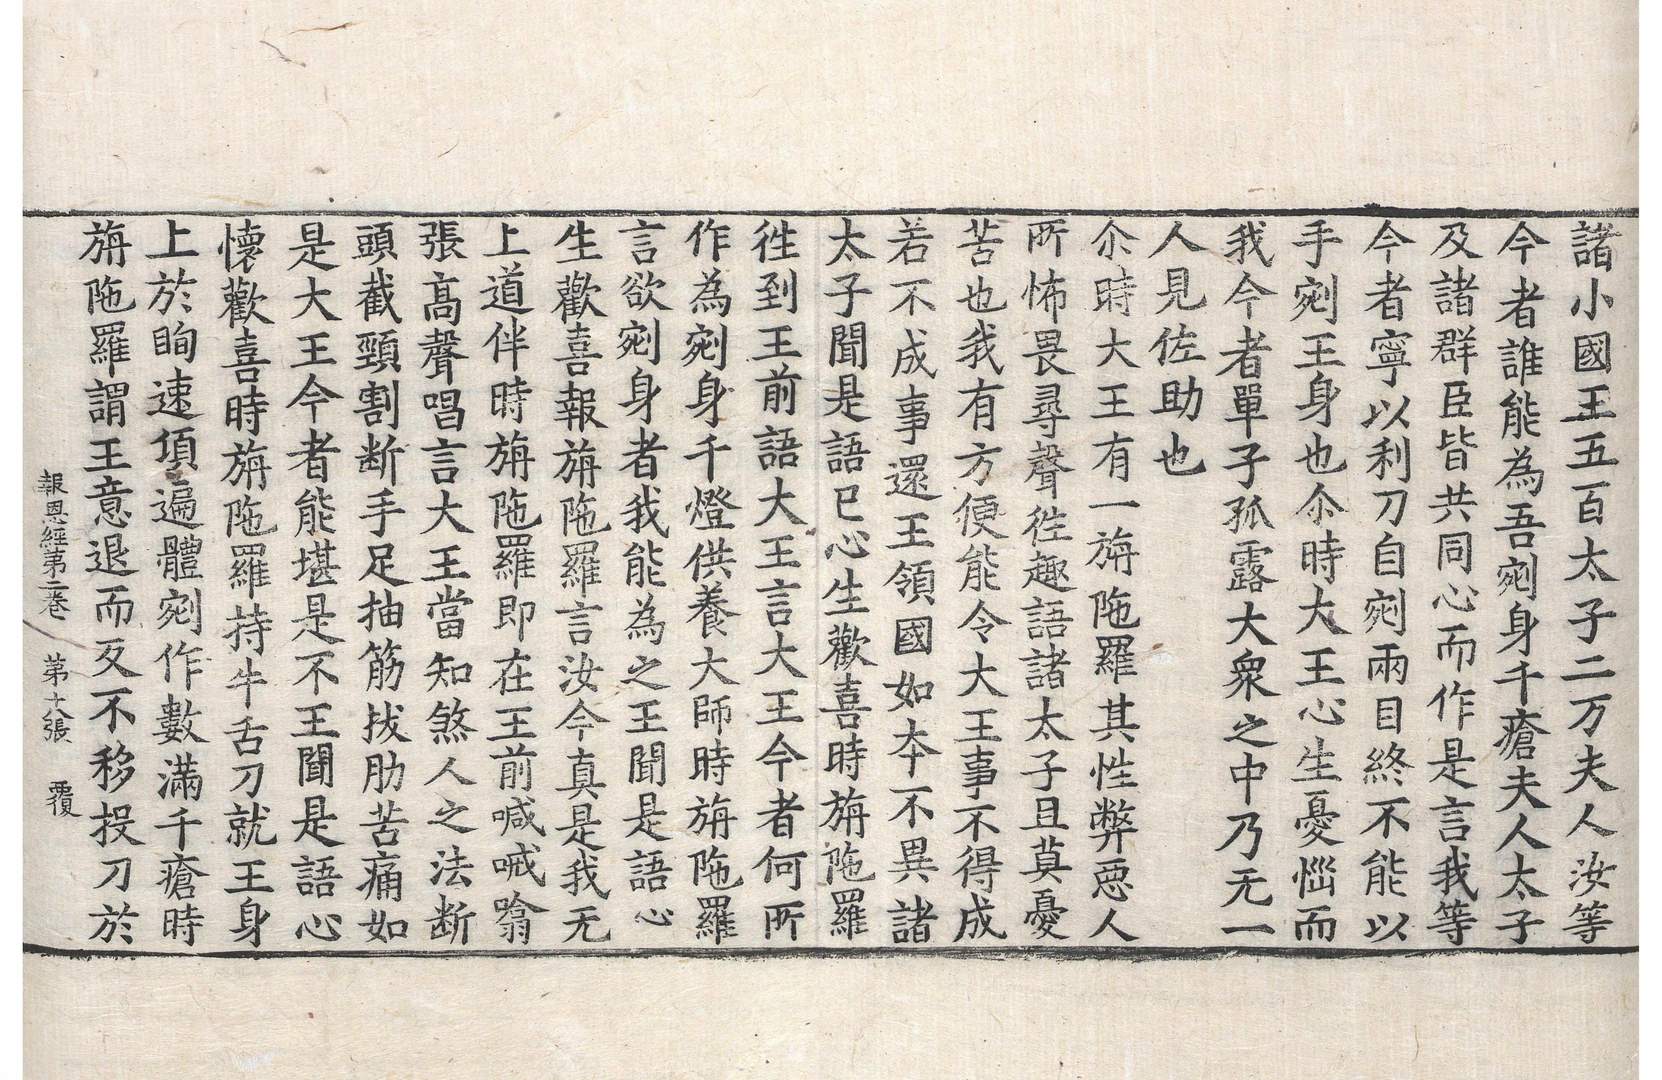 諸小國王五百太子二万夫人汝等
今者誰能為吾剜身千瘡夫人太子
及諸群臣皆共同心而作是言我等
今者寧以利刀自剜兩目終不能以
手剜王身也尒時大王心生憂惱而
我今者單子孤露大衆之中乃无一
人見佐助也
尒時大王有一旃陁羅其性弊惡人
所怖畏尋聲徃趣語諸太子且莫憂
苦也我有方便能令大王事不得成
若不成事還王領國如夲不異諸
太子聞是語已心生歡喜時旃陁羅
徃到王前語大王言大王今者何所
作為剜身千燈供養大師時旃陁羅
言欲剜身者我能為之王聞是語心
生歡喜報旃陁羅言汝今真是我无
上道伴時旃陁羅即在王前喊噏
張髙聲唱言大王當知煞人之法断
頭截頸割断手足抽筋拔肋苦痛如
是大王今者能堪是不王聞是語心
懷歡喜時旃陁羅持牛舌刀就王身
上於眴速頃遍體剜作數滿千瘡時
旃陁羅謂王意退而反不移投刀於
報恩經第二卷 第十八張 覆